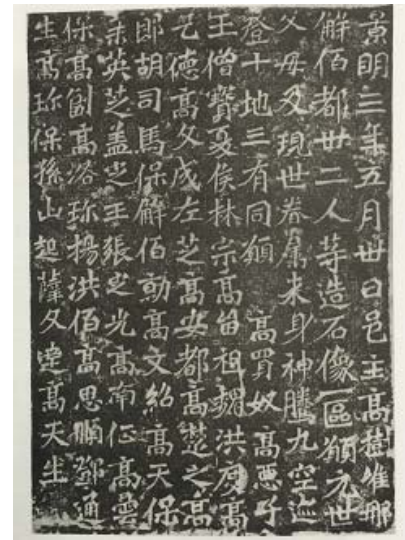 景明三年五月卅日邑主高樹維那
解佰都卅二人等造石像一區願元世
父母及現世眷屬來身神騰九空迹
登十地三有同願 高買奴 高惡子
王僧寶夏侯林宗高留祖魏洪度高
乞德高文成左芝高安都高楚之高
郎胡司馬保解佰勍高文紹高天保
英芝蓋定王張定光高南征高曇
保高副高洛珍楊洪佰高思順鄧通
生高珍保孫山起薩文達高天生